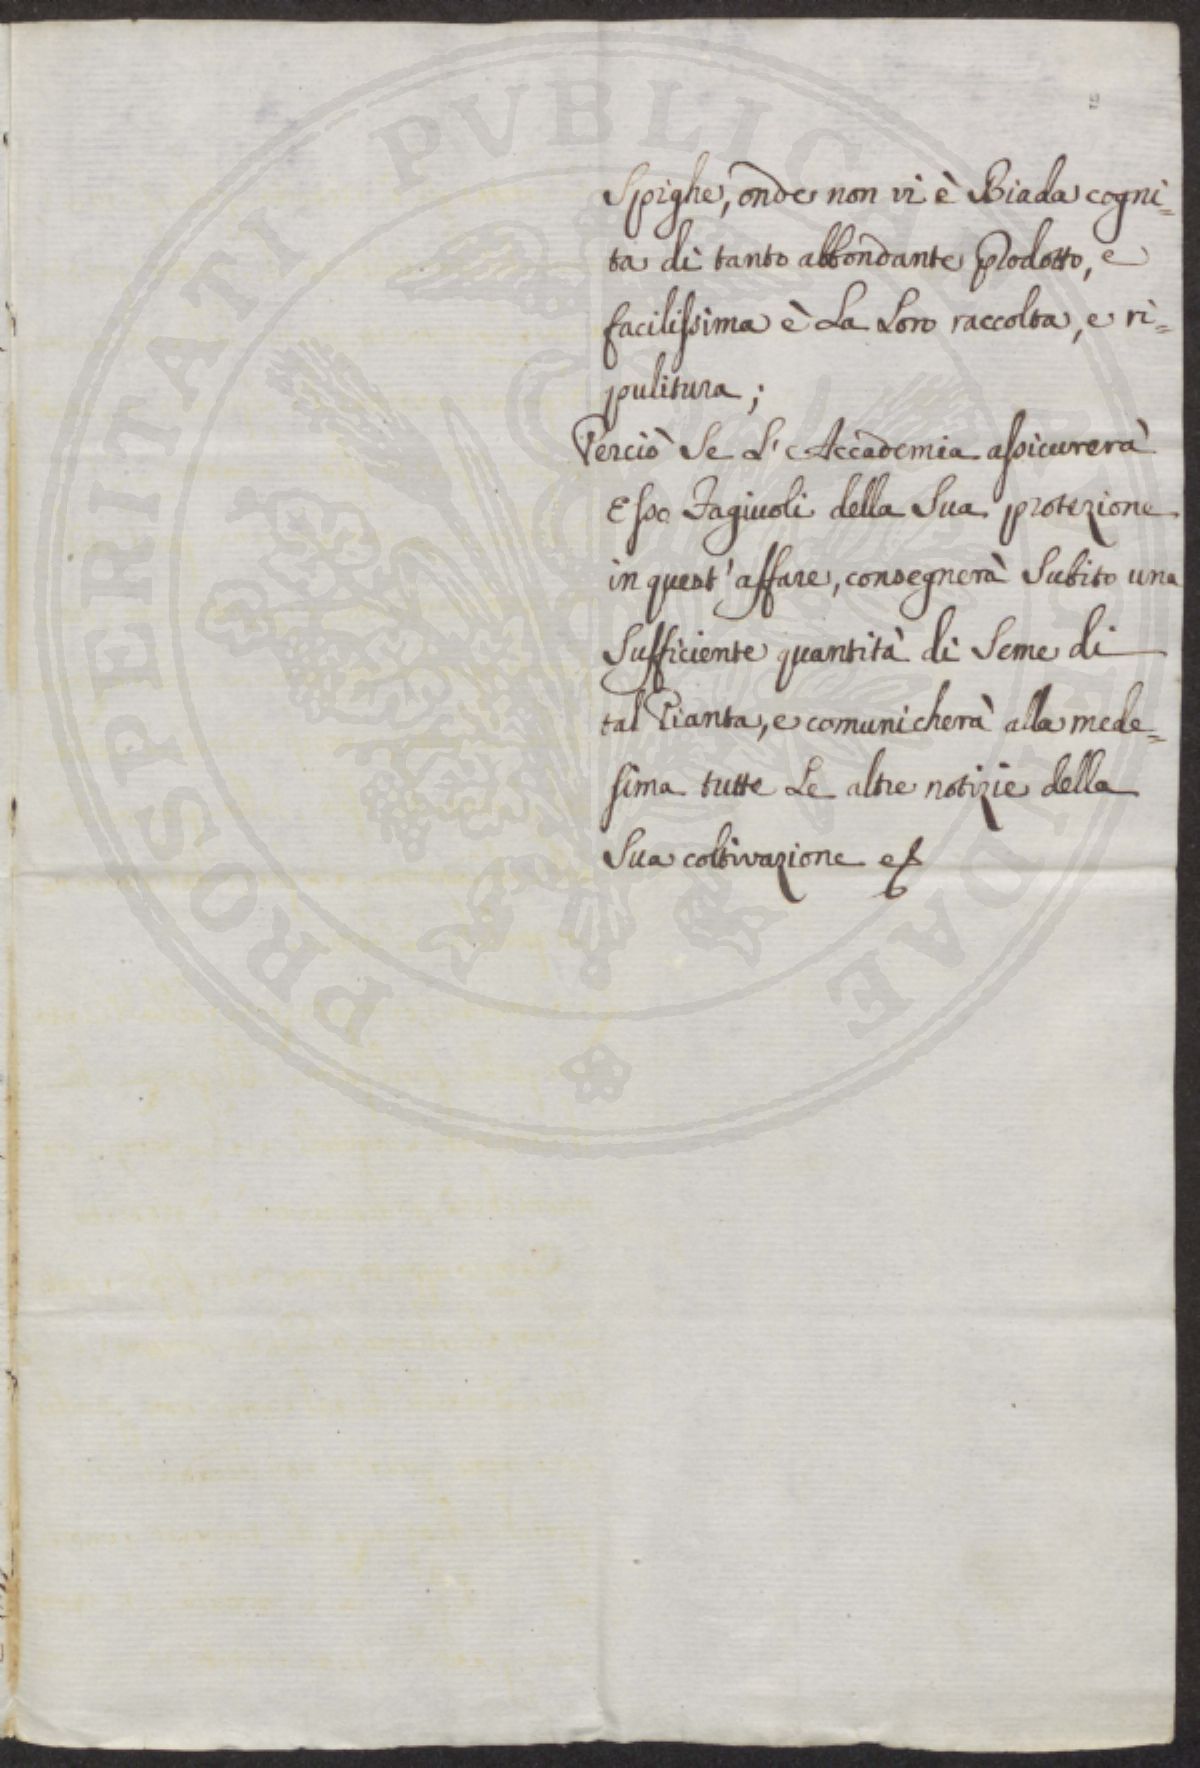 PROSPERITATI PVBLICAE AVGENDAE
Spighe, onde non vi è Biada cogni=
ta di tanto abbondante prodotto, e
facilissima è La Loro raccolta, e ri=
pulitura;
Perciò Se L'Accademia assicurerà
Esso Fagiuoli della Sua protezione
in quest'affare, consegnerà Subito una
Sufficiente quantità di Seme di
tal Pianta, e comunicherà alla mede=
sima tutte Le altre notizie della
Sua coltivazione